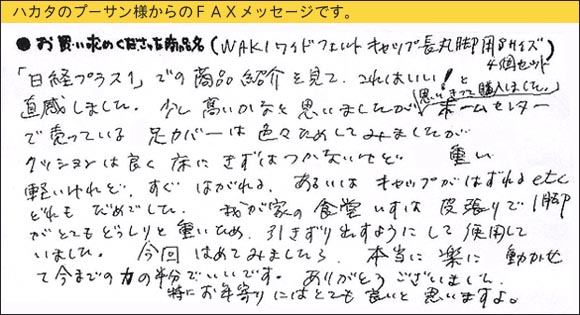 ハカタのプーサン様からのＦＡＸメッセージです。
●お買い求めくださった商品名(WAKIワイドフェルトキャップ長丸脚用Sサイズ)
4個セット
「日経プラス1」での商品紹介を見て、これはいい!と
直感しました。少し高いかなと思いましたが(思いきって購入しました。)ホームセンター
で売っている足カバーは色々ためしてみましたが
クッションは良く床にきずはつかないけど 重い
軽いけれど、すぐはがれる、あるいはキャップがはずれるetc
どれもだめでした。我が家の食堂いすは皮張りで1脚
がとてもどっしりと重いため、引きずり出すようにして使用して
いました。今回はめてみましたら、本当に楽に動かせ
て今までの力の半分でいいです。ありがとうございました。
特にお年寄りにはとても良いと思いますよ。